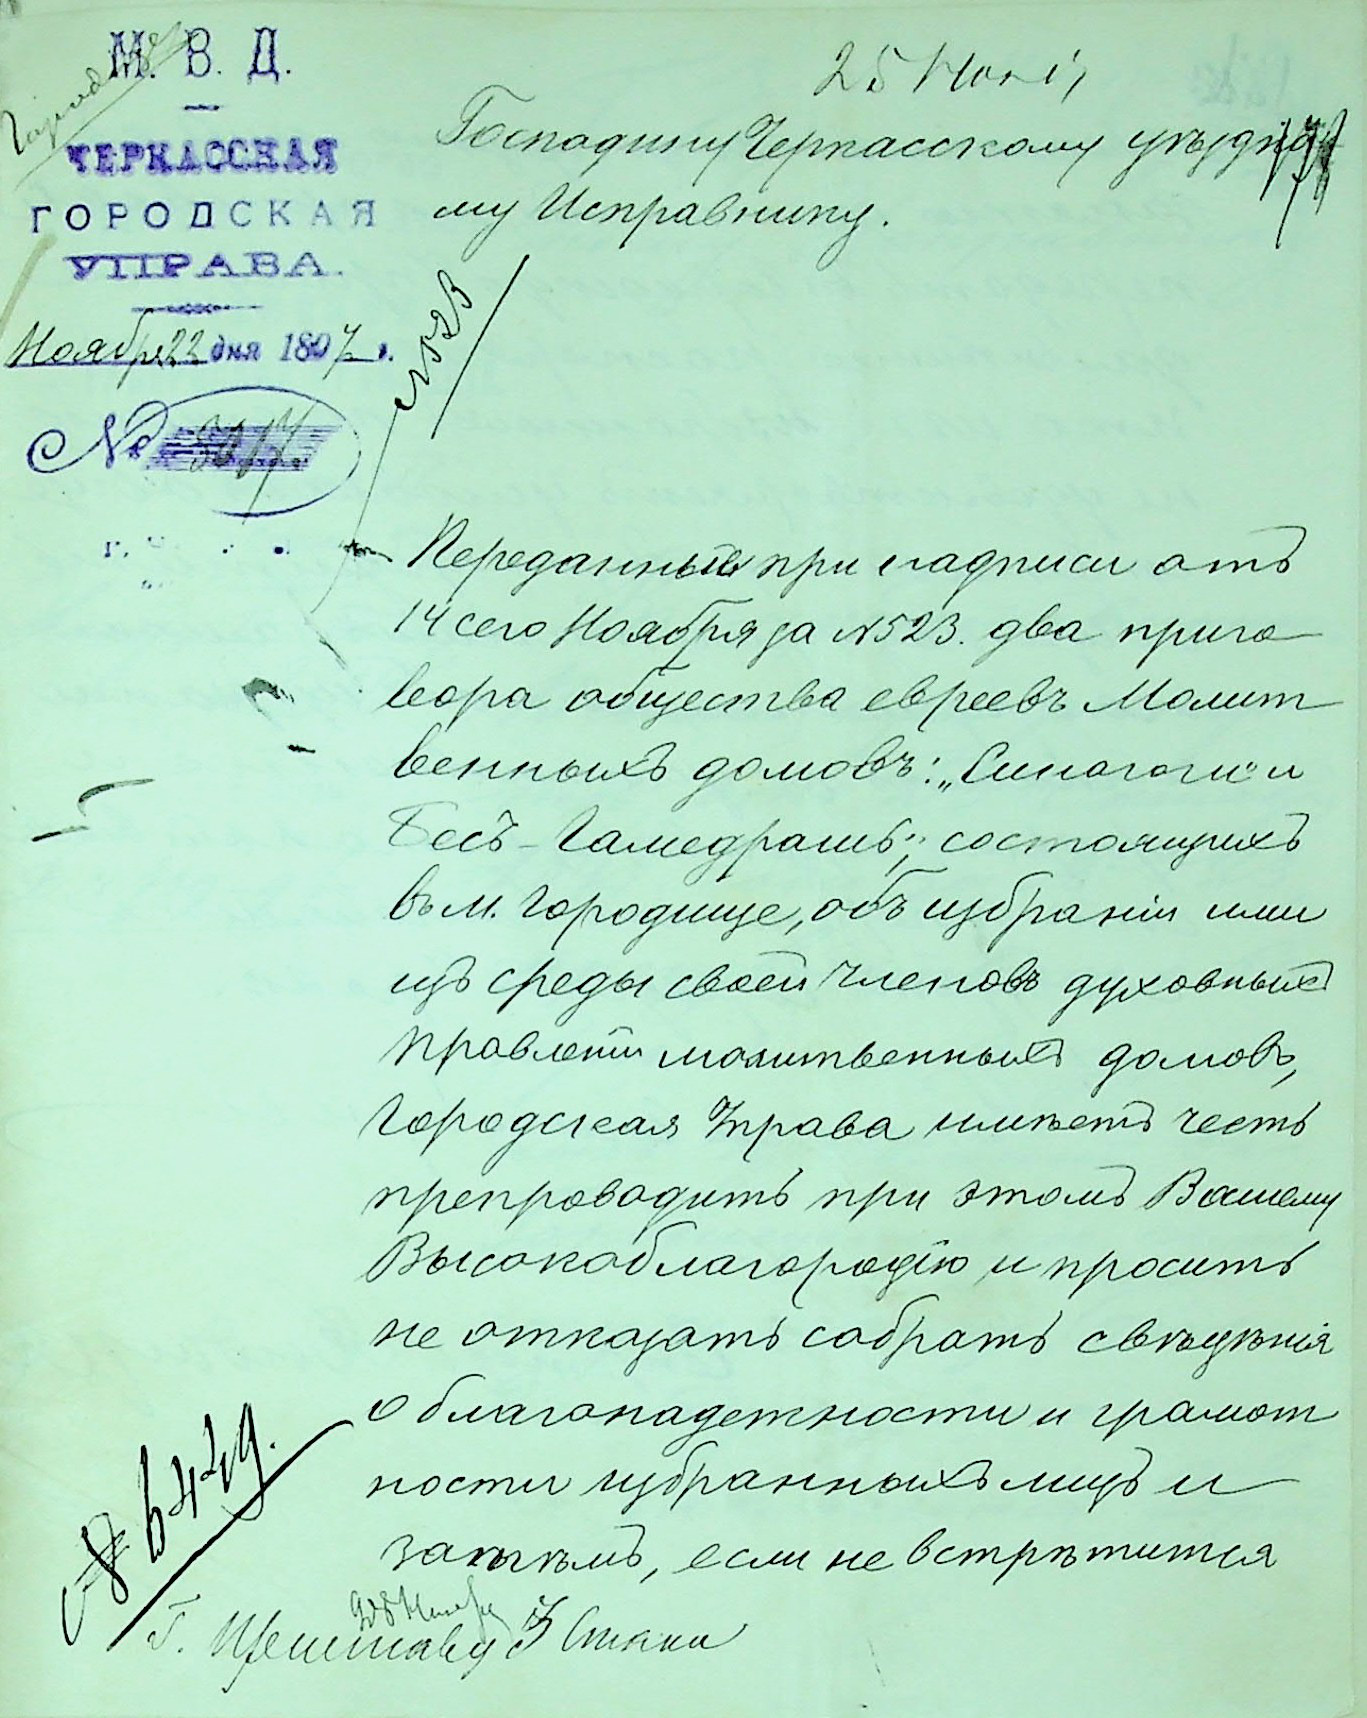 М. В. Д.
ЧЕРКАССКАЯ
ГОРОДСКАЯ
УПРАВА.
Ноября 22 дня 1897 г.
№ 5017
25 Нояб
Господину Черкасскому уѣздно
му Исправнику.
№ 523
Переданные при надписи отъ
14 сего Ноября за № 523. два приго
вора общества евреевъ Молит
венныхъ домовъ: „Синагоги" и
Бесъ-Гамедрашъ", состоящихъ
въ м. Городище, объ избраніи ими
изъ среды своей членовъ духовныхъ
правленій молитвенныхъ домовъ,
Городская Управа имѣетъ честь
препроводить при этомъ Вашему
Высокоблагородію и просить
не отказать собрать свѣдѣнія
о благонадежности и грамот
ности избранныхъ лицъ и
затѣмъ, если не встрѣтится
№ 6429.
28 Ноября
Г. Приставу 3 Стана